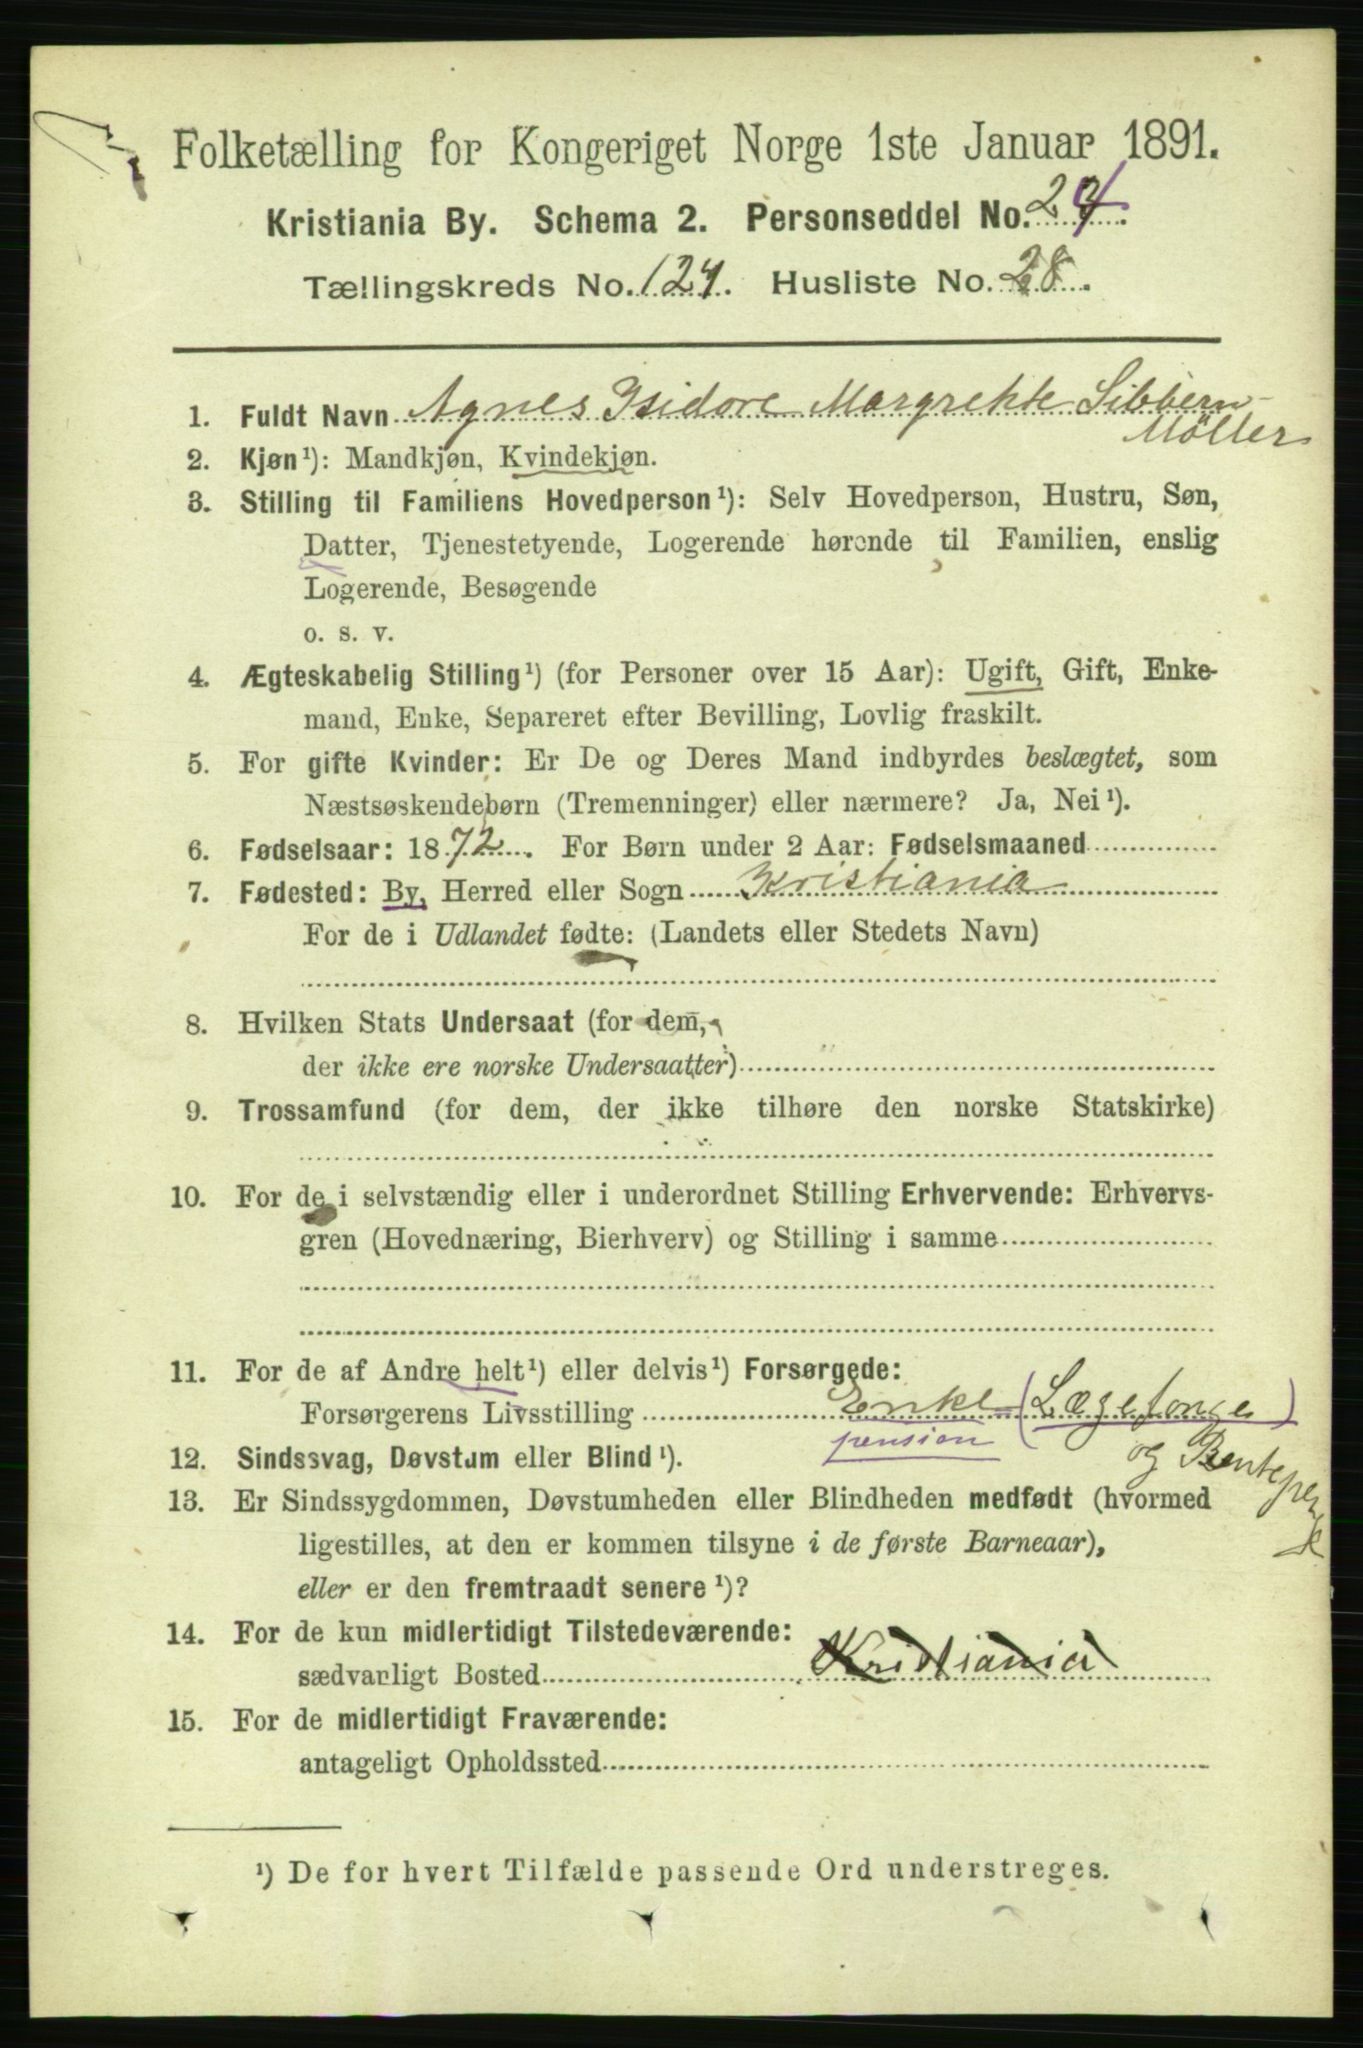 Folketælling for Kongeriget Norge 1ste Januar 1891.
Kristiania By. Schema 2. Personseddel No. 24.
Tællingskreds No. 124. Husliste No. 28.
1. Fuldt Navn Agnes Isidore Margrethe Sibbern-
Möller
2. Kjøn¹): Mandkjøn, Kvindekjøn.
3. Stilling til Familiens Hovedperson¹): Selv Hovedperson, Hustru, Søn,
Datter, Tjenestetyende, Logerende hørende til Familien, enslig
Logerende, Besøgende
o. s. v.
4. Ægteskabelig Stilling¹) (for Personer over 15 Aar): Ugift, Gift, Enke-
mand, Enke, Separeret efter Bevilling, Lovlig fraskilt.
5. For gifte Kvinder: Er De og Deres Mand indbyrdes beslægtet, som
Næstsøskendebørn (Tremenninger) eller nærmere? Ja, Nei¹).
6. Fødselsaar: 1872. For Børn under 2 Aar: Fødselsmaaned
7. Fødested: By, Herred eller Sogn Kristiania
For de i Udlandet fødte: (Landets eller Stedets Navn)
8. Hvilken Stats Undersaat (for dem,
der ikke ere norske Undersaatter)
9. Trossamfund (for dem, der ikke tilhøre den norske Statskirke)
10. For de i selvstændig eller i underordnet Stilling Erhvervende: Erhvervs-
gren (Hovednæring, Bierhverv) og Stilling i samme
11. For de af Andre helt¹) eller delvis¹) Forsørgede:
Forsørgerens Livsstilling Enke (Læge
pension
og
12. Sindssvag, Døvstum eller Blind¹).
13. Er Sindssygdommen, Døvstumheden eller Blindheden medfødt (hvormed
ligestilles, at den er kommen tilsyne i de første Barneaar),
eller er den fremtraadt senere¹)?
14. For de kun midlertidigt Tilstedeværende:
sædvanligt Bosted Kristiania
15. For de midlertidigt Fraværende:
antageligt Opholdssted
¹) De for hvert Tilfælde passende Ord understreges.